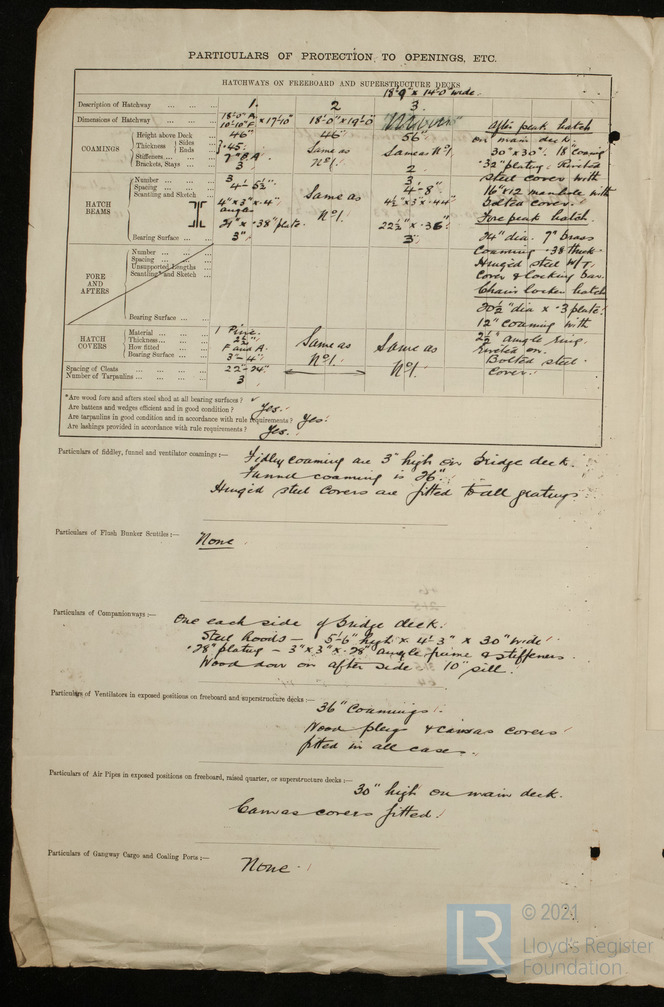 PARTICULARS OF PROTECTION TO OPENINGS, ETC.
HATCHWAYS ON FREEBOARD AND SUPERSTRUCTURE DECKS
18'-9" x 14'-0" wide.
Description of Hatchway 1. 2 3
Dimensions of Hatchway x 17'-10" 18'-0" x 19'-0"
COAMINGS
Height above Deck 46" 46" 56"
Thickness Sides Ends .45. Same as No 1. Same as No 1.
Stiffeners 7" B.A. 2
Brackets, Stays 3 2
HATCH BEAMS
Number 3 3
Spacing 4'-5½" 4'-8"
Scantling and Sketch 4" x 3" x .4" angles Same as No 1. 4½" x 3" x .44"
21" x .38" plate. 22½" x .36"
Bearing Surface 3" 3"
FORE AND AFTERS
Number
Spacing
Unsupported Lengths
Scantling and Sketch
Bearing Surface
HATCH COVERS
Material Pine.
Thickness 2½" Same as No 1. Same as No 1.
How fitted F and A.
Bearing Surface 3"-4"
Spacing of Cleats 22"-24"
Number of Tarpaulins 3
After peak hatch
on main deck.
30" x 30". 18" coaming
.32" plating. Riveted
steel cover with
16" x 12 manhole with
bolted cover.
Fore peak hatch.
24" dia. 7" brass
Coaming .38 thick
Hinged steel W/T
cover & locking bar.
Chain locker hatch
20½" dia x .3 plate
12" coaming with
2½" angle ring
riveted on.
Bolted steel
cover.
*Are wood fore and afters steel shod at all bearing surfaces?
Are battens and wedges efficient and in good condition? Yes.
Are tarpaulins in good condition and in accordance with rule requirements? Yes.
Are lashings provided in accordance with rule requirements? Yes.
Particulars of fiddley, funnel and ventilator coamings:—
Fidley coaming are 3" high on Bridge deck.
Funnel coaming is 26".
Hinged steel covers are fitted to all gratings
Particulars of Flush Bunker Scuttles:—
None
Particulars of Companionways:—
One each side of Bridge deck.
Steel hoods — 5'-6" high x 4'-3" x 30" wide
.28" plating — 3" x 3" x .28" angle frame & stiffeners.
Wood door on after side 10" sill.
Particulars of Ventilators in exposed positions on freeboard and superstructure decks:—
36" Coamings.
Wood plug & canvas covers
fitted in all cases.
Particulars of Air Pipes in exposed positions on freeboard, raised quarter, or superstructure decks:—
30" high on main deck.
Canvas covers fitted.
Particulars of Gangway Cargo and Coaling Ports:—
None.
LR
© 2021
Lloyd's Register
Foundation